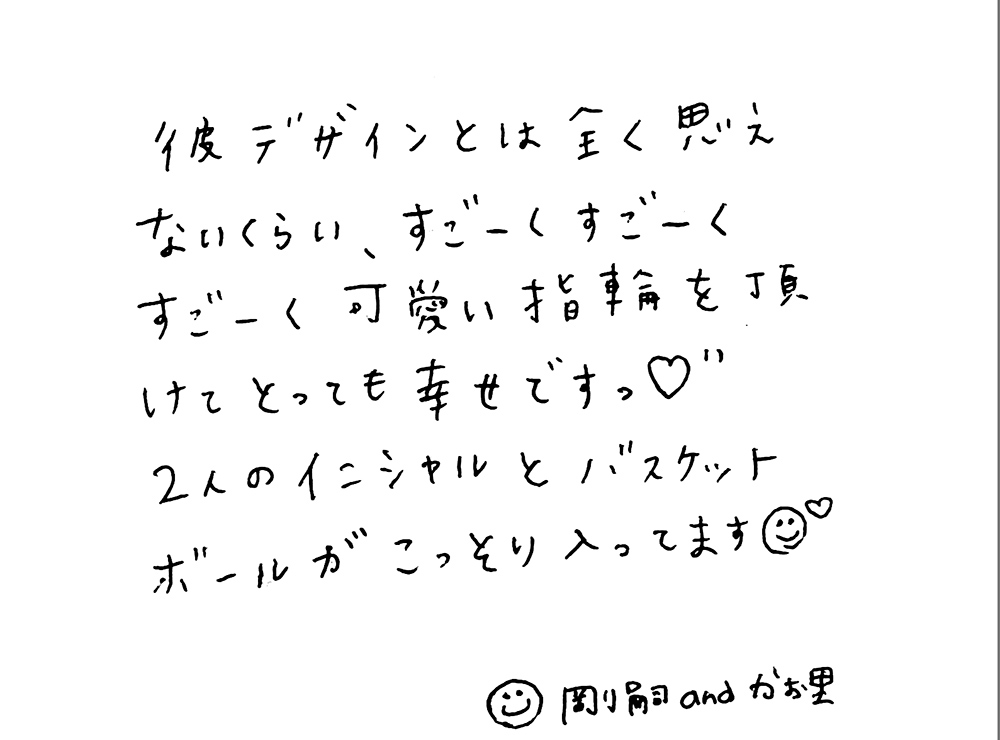 彼デザインとは全く思え
ないくらい、すごーくすごーく
すごーく可愛い指輪を頂
けてとっても幸せですっ♡"
2人のイニシャルとバスケット
ボールがこっそり入ってます☺♡
☺剛嗣 and かお里